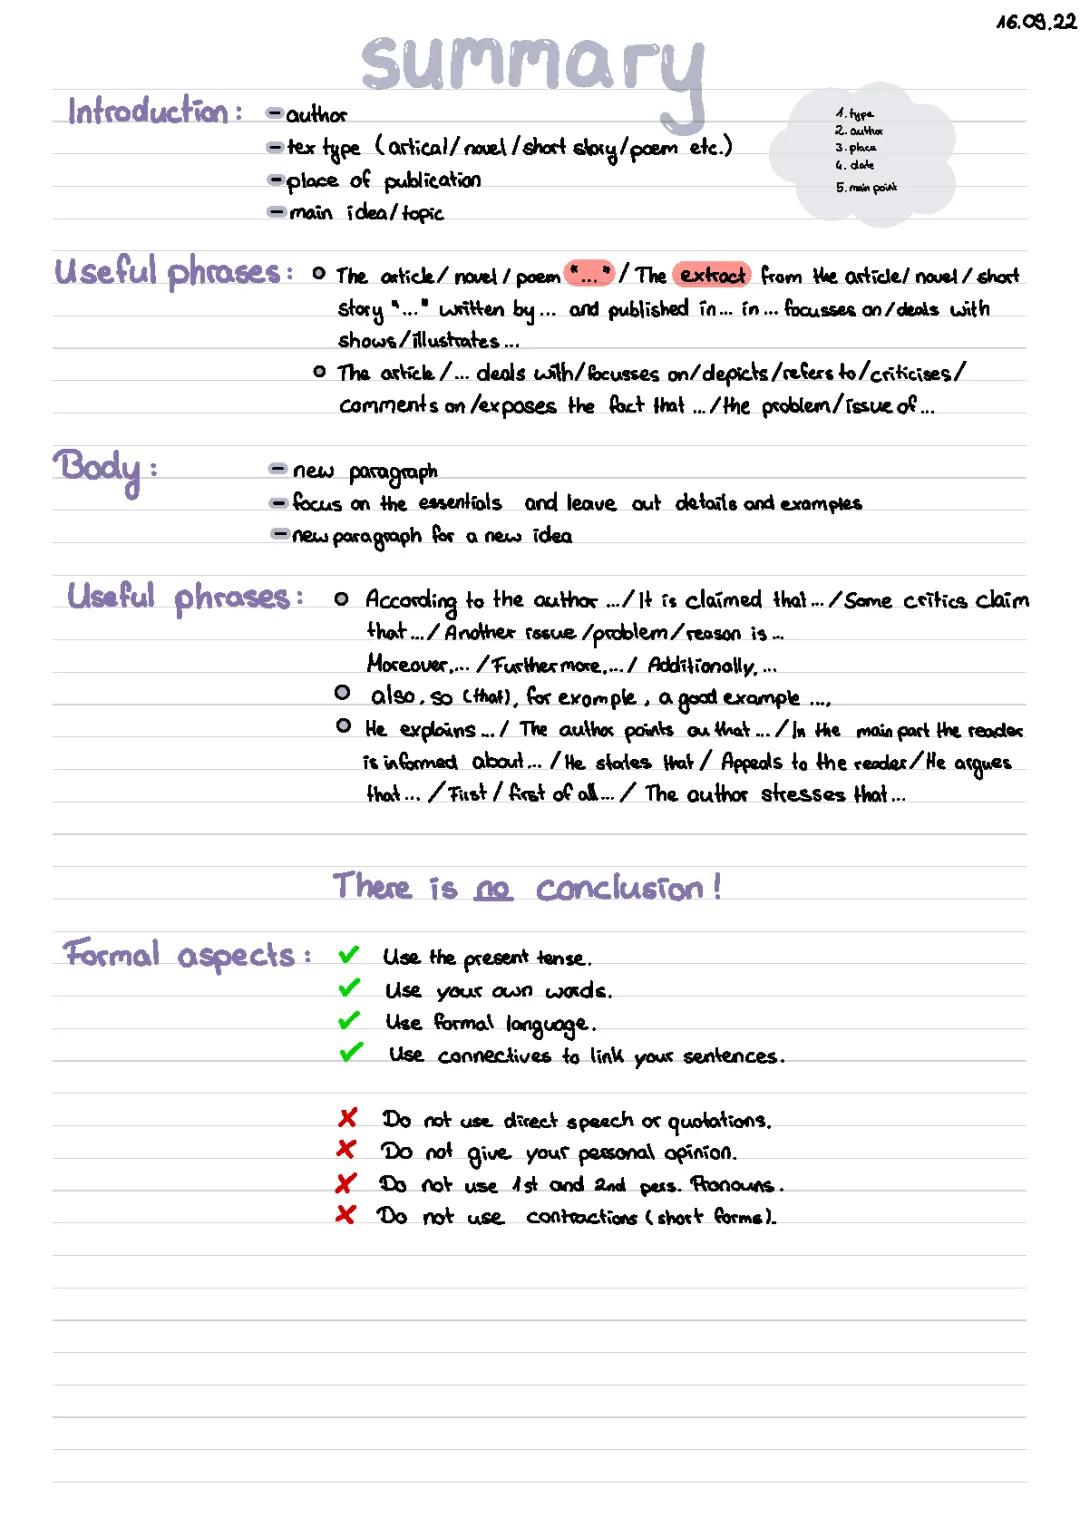 16.09.22
summary
Introduction: - author
- tex type (artical/ novel / short story/poem etc.)
- place of publication
- main idea/ topic
1. type
2. author
3. place
4. date
5. main point
Useful phrases: o The article/ novel / poem "..." / The extract from the article/ novel / short
story "..." written by ... and published in ... in ... focusses on/deals with
shows/illustrates ...
o The article /... deals with/focusses on/depicts/refers to/criticises/
comments on /exposes the fact that ... /the problem/issue of ...
Body: - new paragraph
- focus on the essentials and leave out details and examples
- new paragraph for a new idea
Useful phrases: o According to the author .../ It is claimed that ... / Some critics claim
that .../ Another issue /problem/reason is ...
Moreover,... / Furthermore,... / Additionally, ...
o also, so (that), for example, a good example ...,
o He explains .../ The author points ou that ... / In the main part the reader
is informed about... / He states that / Appeals to the reader/ He argues
that ... / First / first of all ... / The author stresses that ...
There is no conclusion!
Formal aspects: ✓ Use the present tense.
✓ Use your own words.
✓ Use formal language.
✓ Use connectives to link your sentences.
✗ Do not use direct speech or quotations.
✗ Do not give your personal opinion.
✗ Do not use 1st and 2nd pers. Pronouns.
✗ Do not use contractions (short forms).